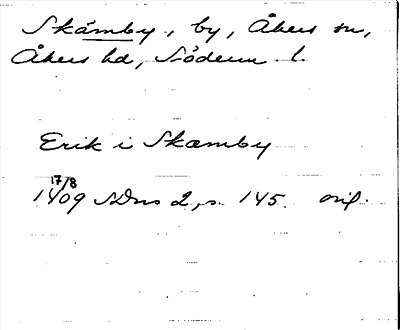 Skämby, by, Åkers sn,
Åkers hd, Söderm l.
Erik i Skæmby
17/8
1409 SDns 2, s 145. orig.